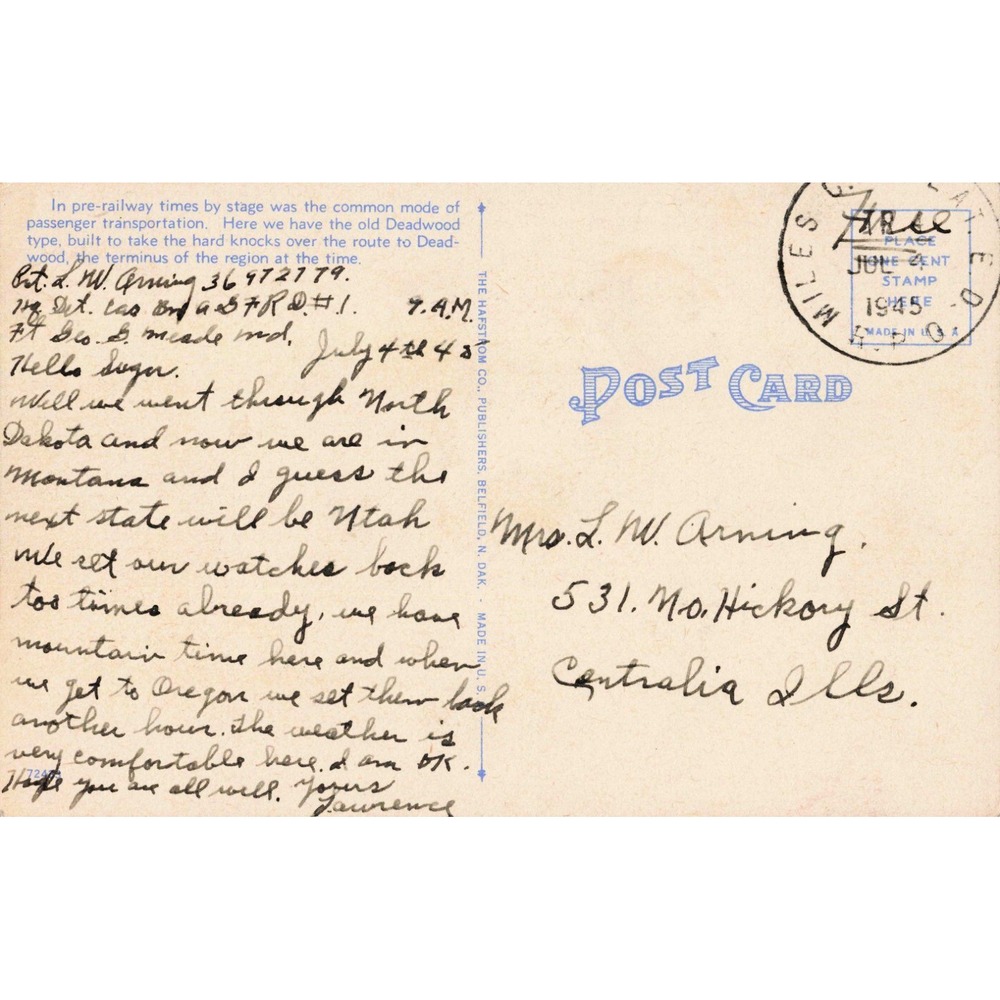 In pre-railway times by stage was the common mode of
passenger transportation. Here we have the old Deadwood
type, built to take the hard knocks over the route to Dead-
wood, the terminus of the region at the time.
Pvt. L. W. Arning 36972779.
Hq Det. Cas Bn A G F R D. #1. 9. A.M.
Ft Geo. G. Meade Md. July 4th 45
Hello Sugar.
Well we went through North
Dakota and now we are in
Montana and I guess the
next state will be Utah
We set our watches back
too times already, we have
mountain time here and when
we get to Oregon we set them back
another hour. The weather is
very comfortable here. I am OK.
Hope you are all well. Yours
Lawrence
THE HAFSTROM CO., PUBLISHERS, BELFIELD, N. DAK. - MADE IN U. S.
POST CARD
Free
PLACE
ONE CENT
STAMP
HERE
MADE IN U.S.A
MILES
JUL 4
1945
R.P.O.
Mrs. L. W. Arning.
531. No. Hickory St.
Centralia Ills.